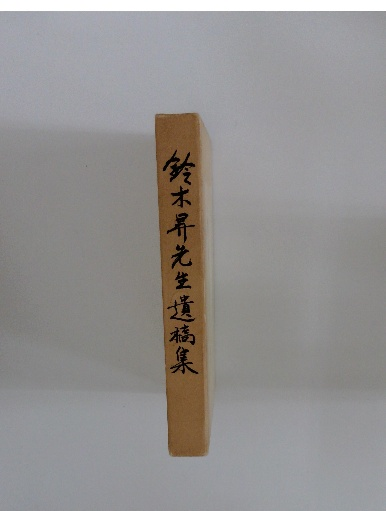 鈴木昇先生遺稿集